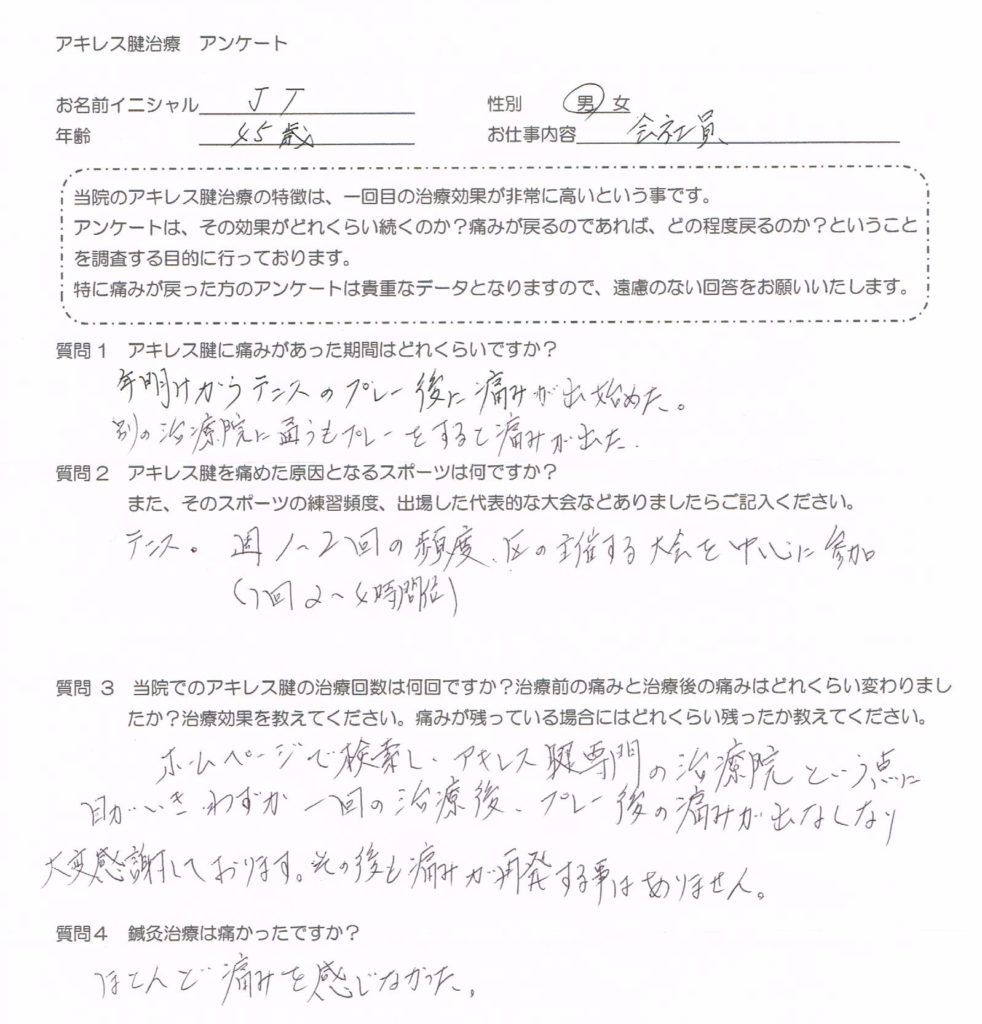 アキレス腱治療 アンケート
お名前イニシャル J T 性別 男 女
年齢 45歳 お仕事内容 会社員
当院のアキレス腱治療の特徴は、一回目の治療効果が非常に高いという事です。
アンケートは、その効果がどれくらい続くのか?痛みが戻るのであれば、どの程度戻るのか?ということ
を調査する目的に行っております。
特に痛みが戻った方のアンケートは貴重なデータとなりますので、遠慮のない回答をお願いいたします。
質問1 アキレス腱に痛みがあった期間はどれくらいですか?
年明けからテニスのプレー後に痛みが出始めた。
別の治療院に通うもプレーをすると痛みが出た.
質問2 アキレス腱を痛めた原因となるスポーツは何ですか?
また、そのスポーツの練習頻度、出場した代表的な大会などありましたらご記入ください。
テニス。 週1〜2回の頻度、区の主催する大会を中心に参加
(1回2〜4時間位)
質問 3 当院でのアキレス腱の治療回数は何回ですか?治療前の痛みと治療後の痛みはどれくらい変わりまし
たか?治療効果を教えてください。痛みが残っている場合にはどれくらい残ったか教えてください。
ホームページで検索し、アキレス腱専門の治療院という点に
目がいき、わずか一回の治療後、プレー後の痛みが出なくなり
大変感謝しております。その後も痛みが再発する事はありません。
質問4 鍼灸治療は痛かったですか?
ほとんど痛みを感じなかった。